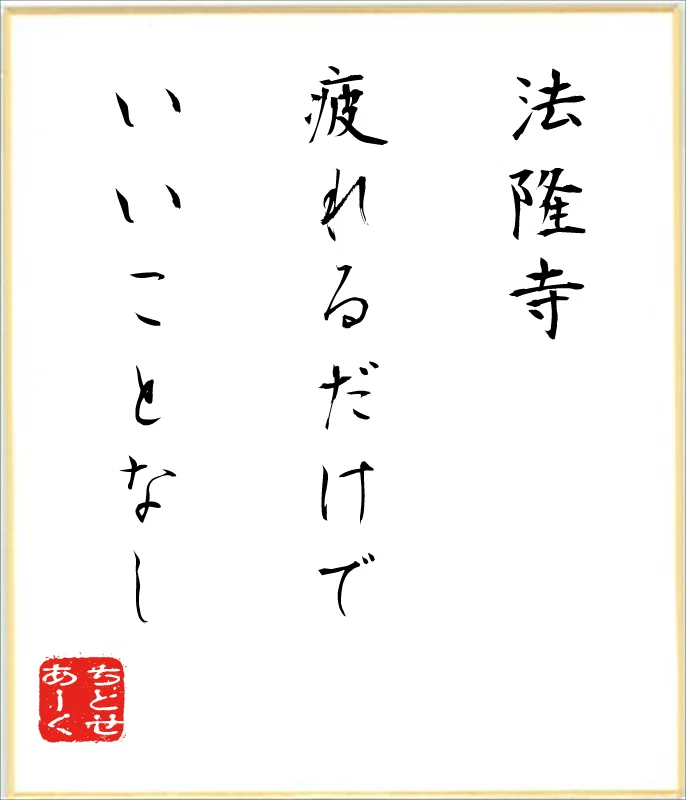 法隆寺
疲れるだけで
いいことなし
ちとせ
あーく